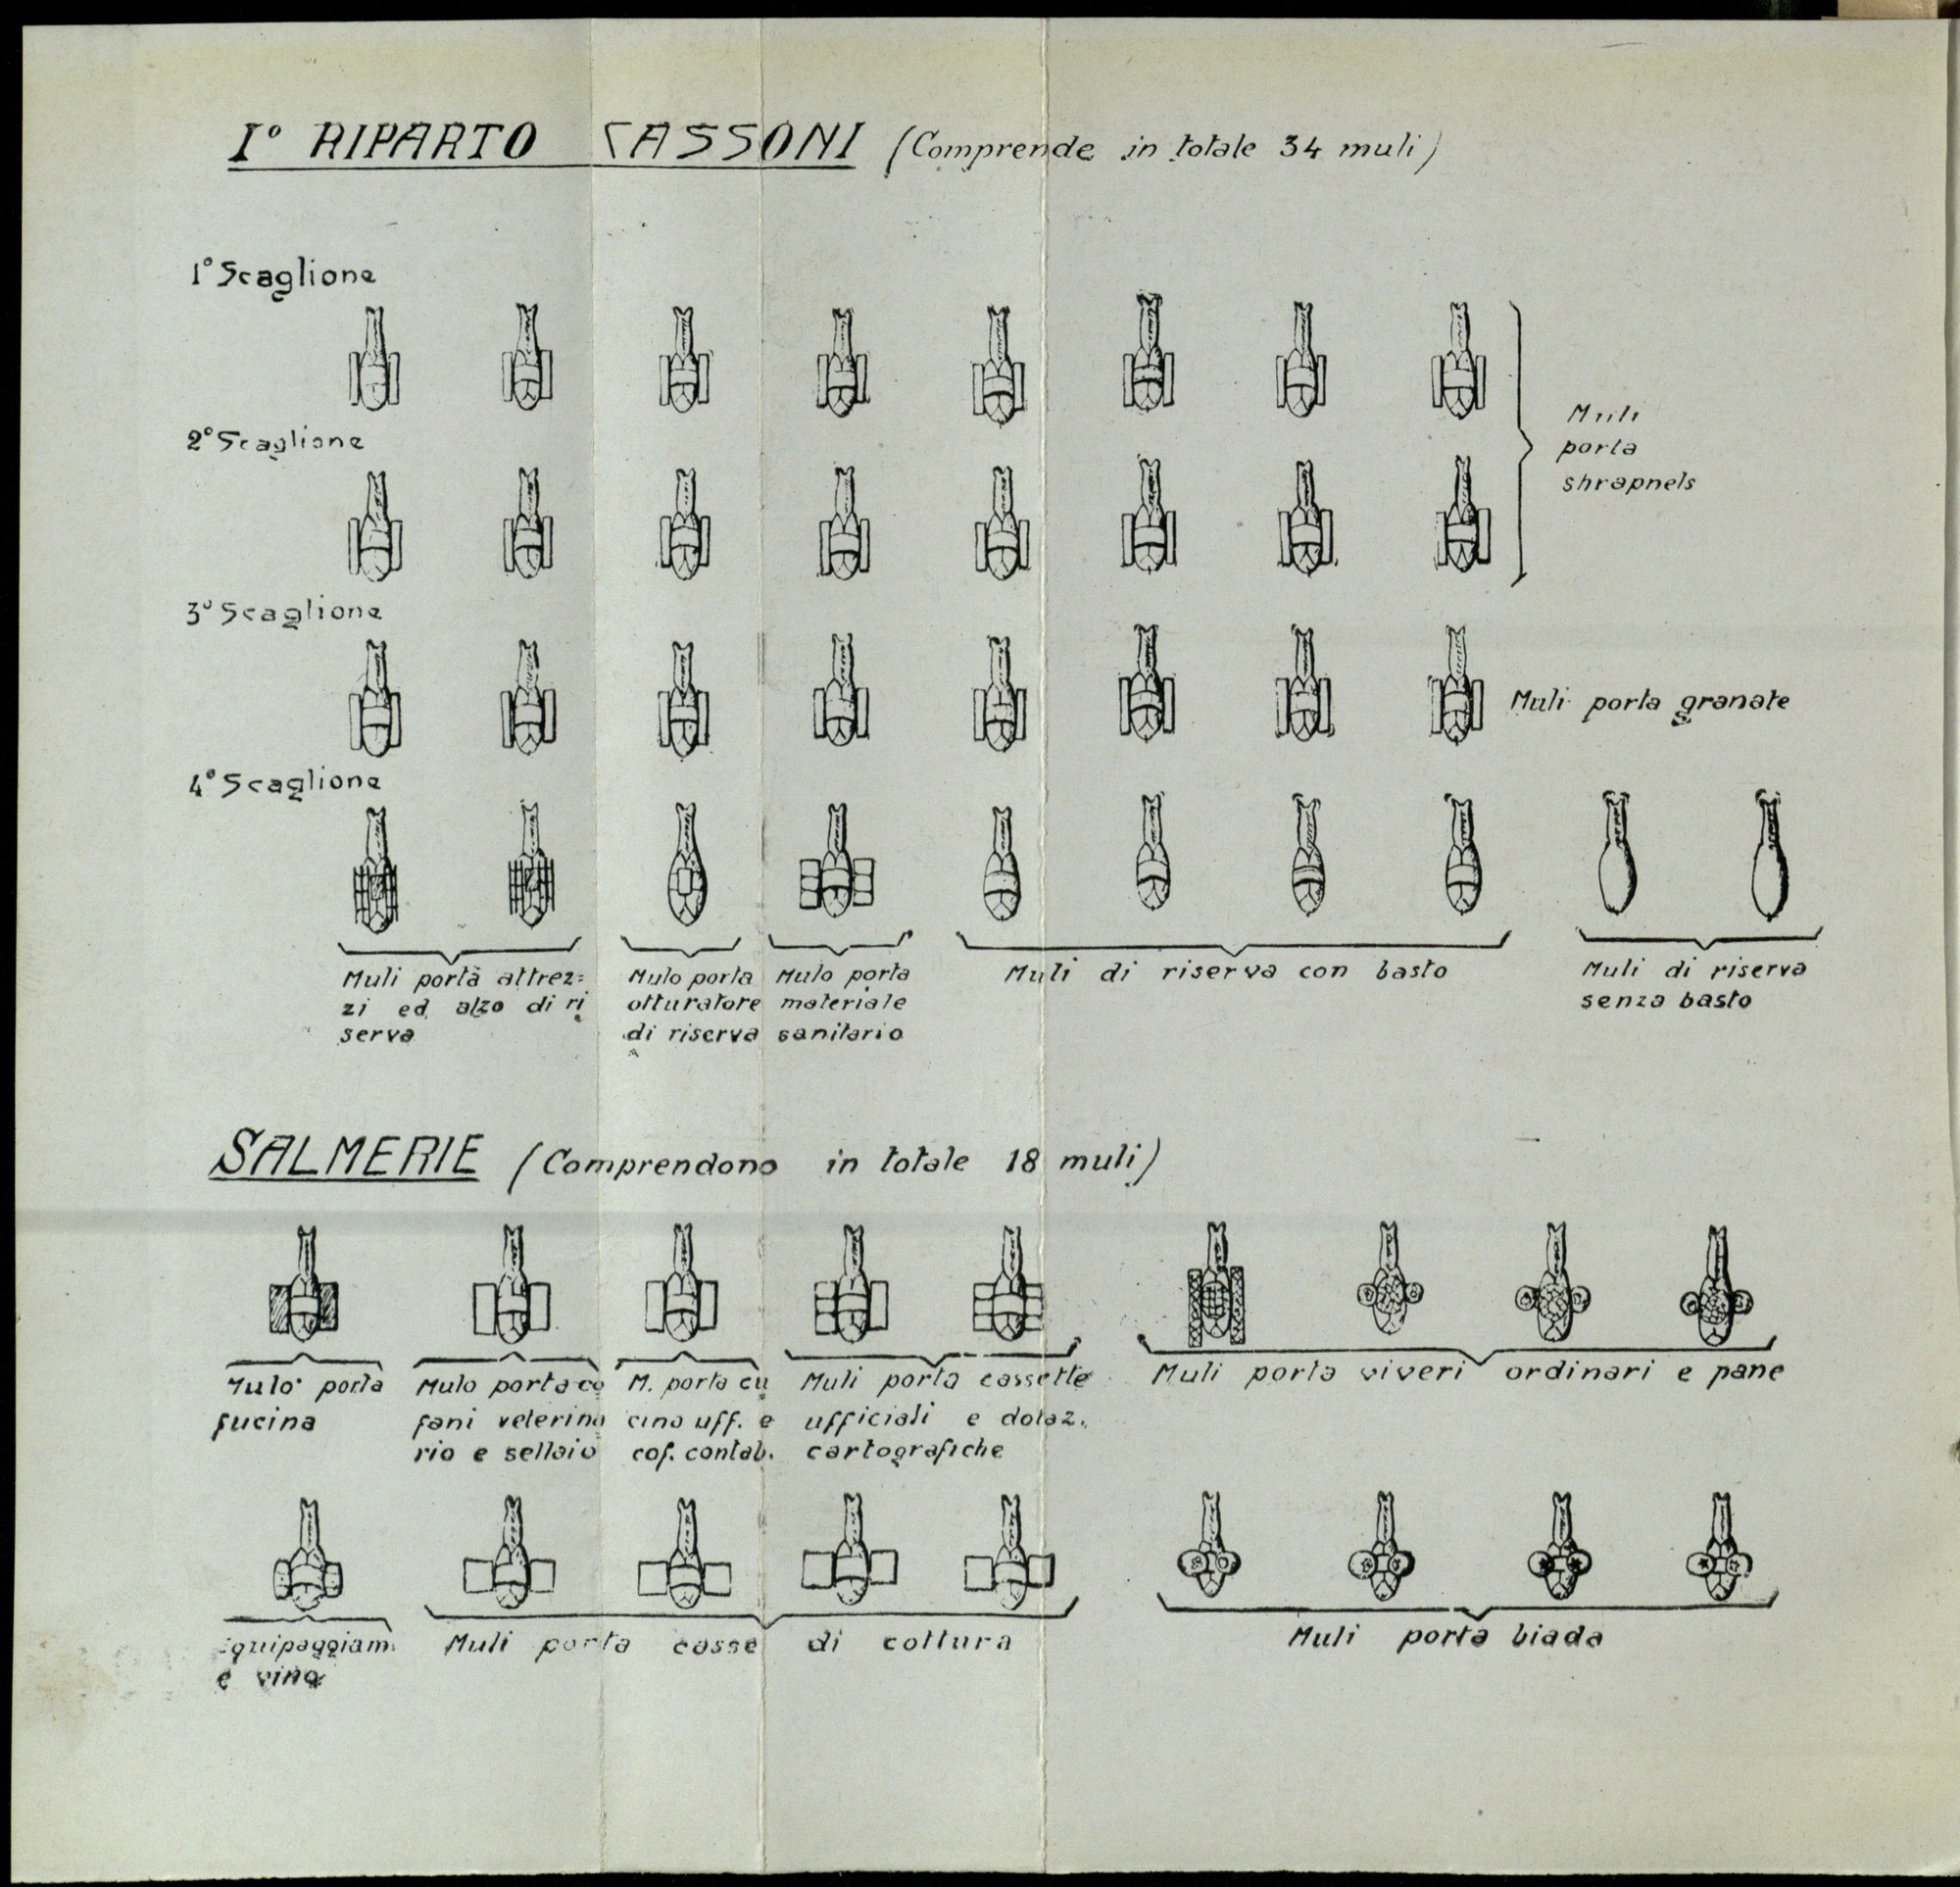 I° RIPARTO CASSONI (Comprende in totale 34 muli)
1° Scaglione
2° Scaglione
Muli
porta
shrapnels
3° Scaglione
Muli porta granate
4° Scaglione
Muli porta attrez=
zi ed alzo di ri
serva
Mulo porta
otturatore
di riserva
Mulo porta
materiale
sanitario
Muli di riserva con basto
Muli di riserva
senza basto
SALMERIE (Comprendono in totale 18 muli)
Mulo porta
fucina
Mulo porta co
fani veterina
rio e sellaio
M. porta cu
cina uff. e
cof. contab.
Muli porta cassette
ufficiali e dotaz.
cartografiche
Muli porta viveri ordinari e pane
Equipaggiam.
e vino
Muli porta casse di cottura
Muli porta biada